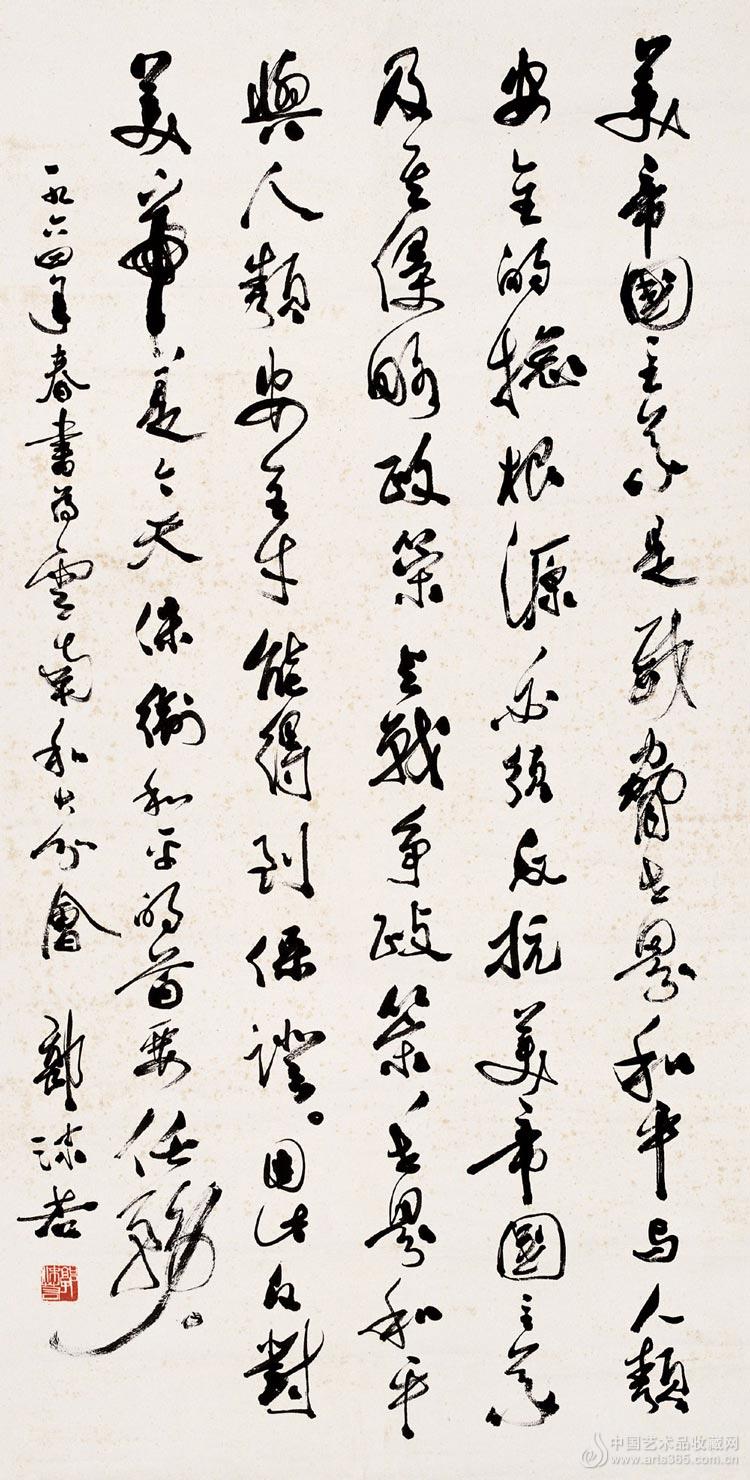 美帝國主義是威脅世界和平与人類
安全的總根源必須反抗美帝國主義
及其侵略政策与戰爭政策世界和平
與人類安全才能得到保證。因此反對
美帝是今天保衛和平的首要任務。
一九六四年春書為雲南和大分會 郭沫若
郭沫若
中国艺术品收藏网
www.arts365.com.cn